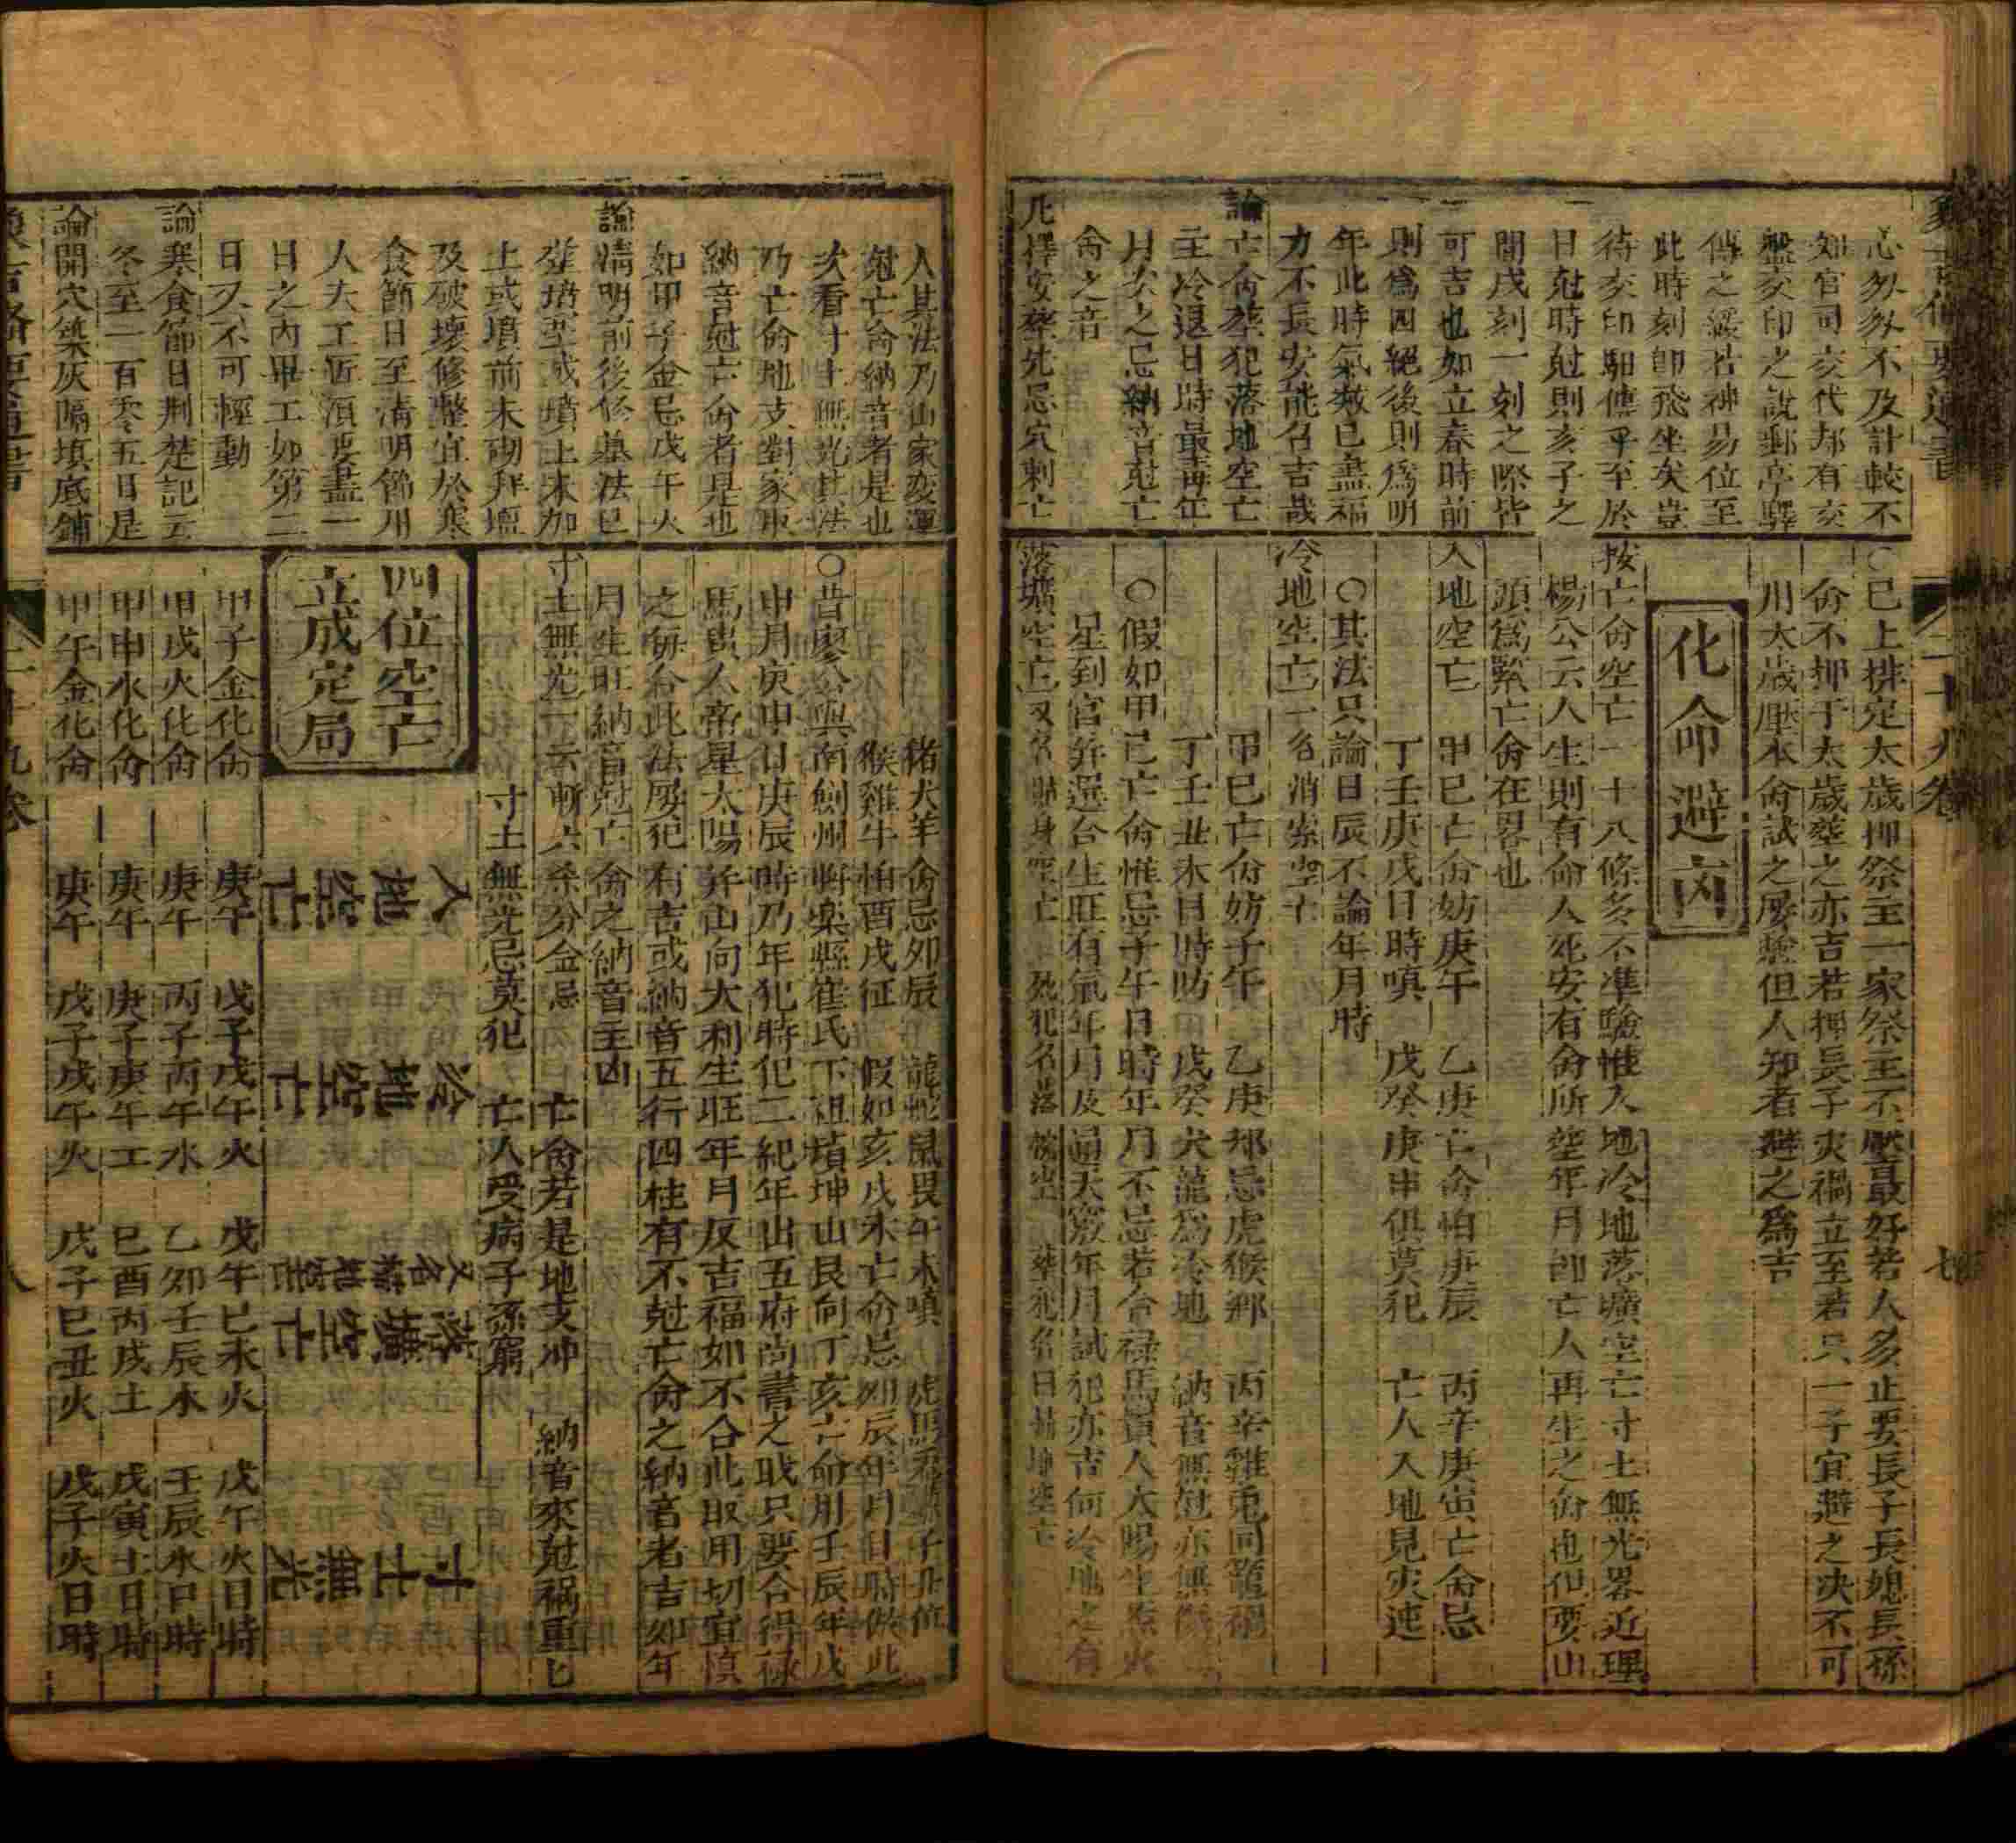 心匆匆不及計較不
知官司交代都有交
盤交印之說郵亭驛
傳之緩若神易位至
此時刻卽飛坐矣豈
待交印馹傳乎至於
日尅時尅則亥子之
間戌刻一刻之際皆
可吉也如立春時前
則爲四絕後則爲明
年此時氣數已盡福
力不長安能召吉哉
論亡命葬犯落地空亡
主冷退日時最毒年
月次之忌納音尅亡
命之音
凡擇安葬先忌穴刺亡
〇已上排定太歲押祭主一家祭主不壓最好若人多止要長子長媳長孫
命不押于太歲葬之亦吉若押長子灾禍立至若只一子宜避之决不可
川太歲壓本命試之屢驗但人知者避之爲吉
化命避凶
按亡命空亡一十八條多不准驗惟入地冷地落壙空亡寸土無光畧近理
楊公云人生則有命人死安有命所葬年月卽亡人再生之命也但要山
頭爲緊亡命在畧也
入地空亡 甲巳亡命妨庚午 乙庚亡命怕庚辰 丙辛庚寅亡命忌
丁壬庚戌日時嗔 戊癸庚申俱莫犯 亡人入地見灾迍
〇其法只論日辰不論年月時
冷地空亡一名消索空亡
甲巳亡命妨子午 乙庚都忌虎猴鄉 丙辛雞兎同籠禍
丁壬丑未日時防 戊癸犬龍爲冷地 納音無尅亦無
〇假如甲已亡命惟忌子午日時年月不忌若合祿馬貴人太陽
星到宮弁選合生旺有氣年月及通天竅年月試犯亦吉何冷地之有
落壙空亡
人其法乃山家变運
尅亡命納音者是也
次看寸土無光其法
乃亡命地支對家取
納音尅亡命者是也
如甲子金忌戊午火
論清明前後修墓法已
葬墳塋或墳上未加
土或墳前未砌拜壇
及破壞修整宜於寒
食節日至清明節用
人夫工匠須要盡一
日之內畢工如第二
日又不可輕動
論寒食節日荆楚記云
冬至一百零五日是
論開穴築灰隔填底鋪
猪犬羊命忌夘辰 龍蛇鼠畏午未嗔
猴雞牛怕酉戌征 假如亥戌未亡命忌夘辰年月日時倣此
〇昔廖公與南劍州將樂縣崔氏下祖墳坤山艮向丁亥亡命用壬辰年戊
申月庚申日庚辰時乃年犯時犯二紀年出五府尚書之職只要合得祿
馬貴人帝星太陽弁山向大利生旺年月反吉福如不合此取用切宜慎
之每合此法屢犯有吉或納音五行四柱有不尅亡命之納音者吉如年
月生旺納音尅亡命之納音主凶
寸土無光一云斬六杀分金忌 亡命若是地支冲 納音來尅禍重七
寸土無光忌莫犯 亡人受病子孫窮
四位空亡
立成定局
入地空亡
冷地空亡
落壙空亡
寸土無光
甲子金化命 庚午 戊子戊午火 戊午巳未火 戊午火日時
甲戌火化命 庚午 丙子丙午水 乙夘壬辰水 壬辰水日時
甲申水化命 庚午 庚子庚午土 巳酉丙戌土 戊寅土日時
甲午金化命 庚午 戊子戊午火 戊子巳丑火 戊子火日時